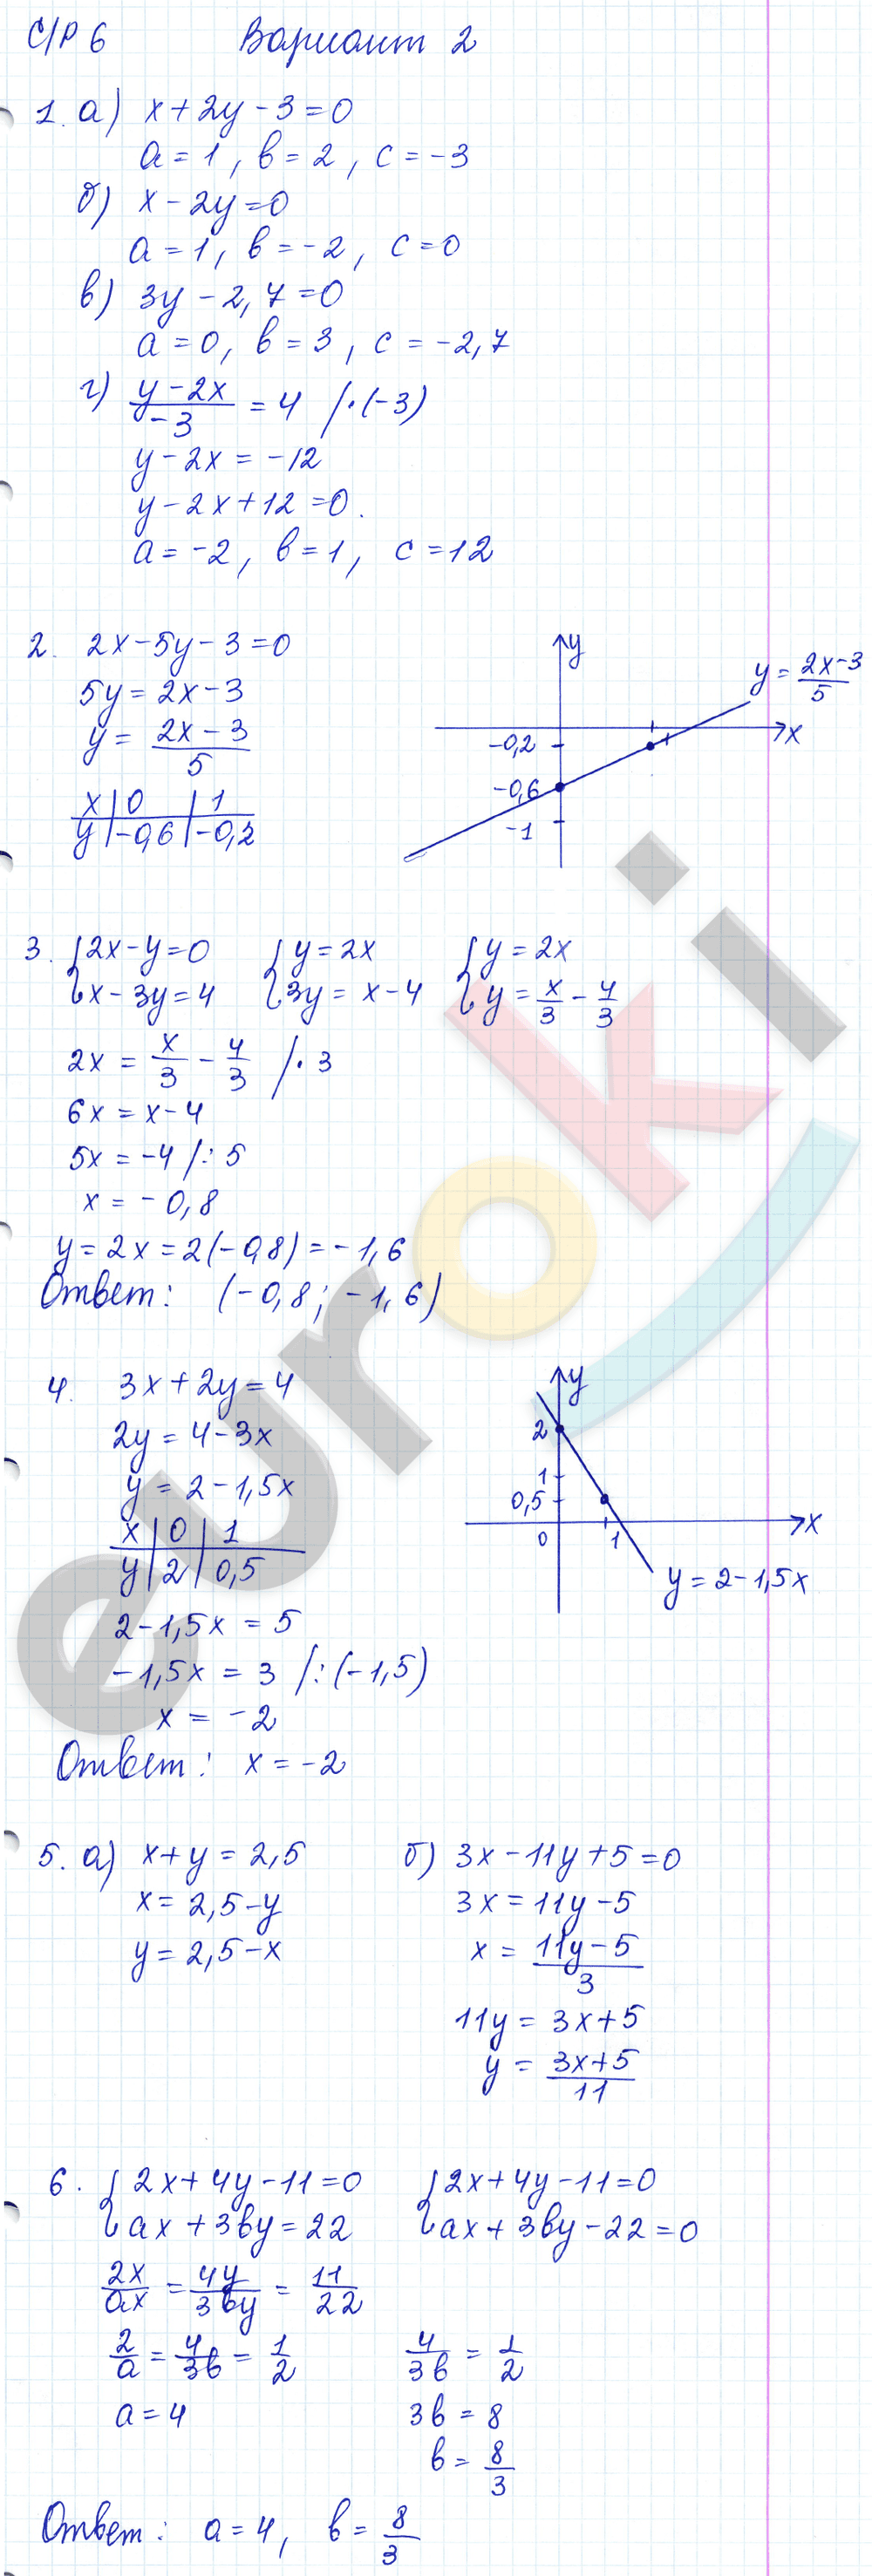 С/Р 6 Вариант 2
1. а) x + 2y - 3 = 0
a = 1, b = 2, c = -3
б) x - 2y = 0
a = 1, b = -2, c = 0
в) 3y - 2,7 = 0
a = 0, b = 3, c = -2,7
г) (y - 2x)/(-3) = 4 /·(-3)
y - 2x = -12
y - 2x + 12 = 0.
a = -2, b = 1, c = 12
2. 2x - 5y - 3 = 0
5y = 2x - 3
y = (2x - 3)/5
x | 0 | 1
y | -0,6 | -0,2
y
y = (2x-3)/5
-0,2
1
x
-0,6
-1
3. { 2x - y = 0 { y = 2x { y = 2x
{ x - 3y = 4 { 3y = x - 4 { y = x/3 - 4/3
2x = x/3 - 4/3 /· 3
6x = x - 4
5x = -4 /: 5
x = -0,8
y = 2x = 2(-0,8) = -1,6
Ответ: (-0,8; -1,6)
4. 3x + 2y = 4
2y = 4 - 3x
y = 2 - 1,5x
x | 0 | 1
y | 2 | 0,5
2 - 1,5x = 5
-1,5x = 3 /: (-1,5)
x = -2
Ответ: x = -2
y
2
1
0,5
0
1
x
y = 2 - 1,5x
5. а) x + y = 2,5
x = 2,5 - y
y = 2,5 - x
б) 3x - 11y + 5 = 0
3x = 11y - 5
x = (11y - 5)/3
11y = 3x + 5
y = (3x + 5)/11
6. { 2x + 4y - 11 = 0 { 2x + 4y - 11 = 0
{ ax + 3by = 22 { ax + 3by - 22 = 0
2x/ax = 4y/3by = 11/22
2/a = 4/3b = 1/2 4/3b = 1/2
a = 4 3b = 8
b = 8/3
Ответ: a = 4, b = 8/3
euroki